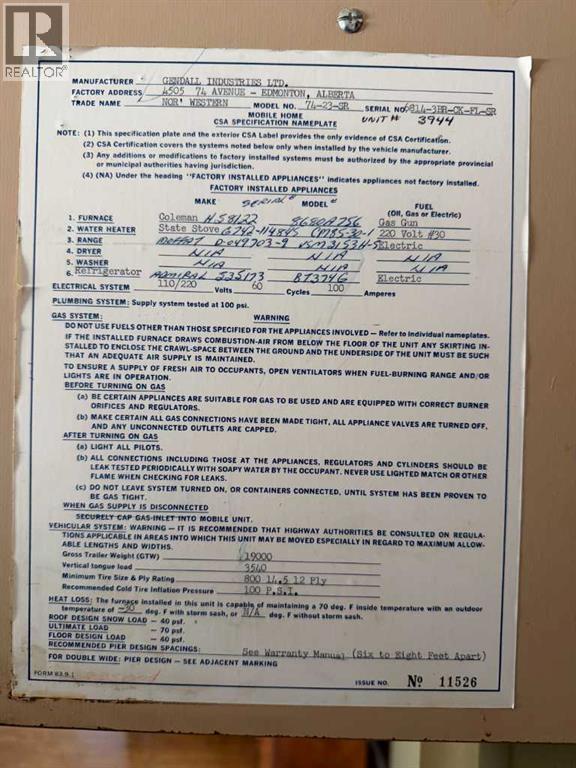 REALTOR®
MANUFACTURER GENDALL INDUSTRIES LTD.
FACTORY ADDRESS 4505 74 AVENUE - EDMONTON, ALBERTA
TRADE NAME NOR' WESTERN MODEL NO. 74-23-SR SERIAL NO. 6814-3BR-CK-FL-SR
MOBILE HOME UNIT # 3944
CSA SPECIFICATION NAMEPLATE
NOTE: (1) This specification plate and the exterior CSA Label provides the only evidence of CSA Certification.
(2) CSA Certification covers the systems noted below only when installed by the vehicle manufacturer.
(3) Any additions or modifications to factory installed systems must be authorized by the appropriate provincial
or municipal authorities having jurisdiction.
(4) (NA) Under the heading "FACTORY INSTALLED APPLIANCES" indicates appliances not factory installed.
FACTORY INSTALLED APPLIANCES
MAKE SERIAL # MODEL # FUEL
(Oil, Gas or Electric)
1. FURNACE Coleman HS8122 8680A756 Gas Gun
2. WATER HEATER State Stove G742-114845 CM85-30-1 220 Volt #30
3. RANGE MOFFAT D-049703-9 Electric
4. DRYER N/A N/A N/A
5. WASHER N/A N/A N/A
6. Refrigerator ADMIRAL 235173 8T3746 Electric
ELECTRICAL SYSTEM 110/220 Volts 60 Cycles 100 Amperes
PLUMBING SYSTEM: Supply system tested at 100 psi.
GAS SYSTEM: WARNING
DO NOT USE FUELS OTHER THAN THOSE SPECIFIED FOR THE APPLIANCES INVOLVED — Refer to individual nameplates.
IF THE INSTALLED FURNACE DRAWS COMBUSTION-AIR FROM BELOW THE FLOOR OF THE UNIT ANY SKIRTING IN-
STALLED TO ENCLOSE THE CRAWL-SPACE BETWEEN THE GROUND AND THE UNDERSIDE OF THE UNIT MUST BE SUCH
THAT AN ADEQUATE AIR SUPPLY IS MAINTAINED.
TO ENSURE A SUPPLY OF FRESH AIR TO OCCUPANTS, OPEN VENTILATORS WHEN FUEL-BURNING RANGE AND/OR
LIGHTS ARE IN OPERATION.
BEFORE TURNING ON GAS
(a) BE CERTAIN APPLIANCES ARE SUITABLE FOR GAS TO BE USED AND ARE EQUIPPED WITH CORRECT BURNER
ORIFICES AND REGULATORS.
(b) MAKE CERTAIN ALL GAS CONNECTIONS HAVE BEEN MADE TIGHT, ALL APPLIANCE VALVES ARE TURNED OFF,
AND ANY UNCONNECTED OUTLETS ARE CAPPED.
AFTER TURNING ON GAS
(a) LIGHT ALL PILOTS.
(b) ALL CONNECTIONS INCLUDING THOSE AT THE APPLIANCES, REGULATORS AND CYLINDERS SHOULD BE
LEAK TESTED PERIODICALLY WITH SOAPY WATER BY THE OCCUPANT. NEVER USE LIGHTED MATCH OR OTHER
FLAME WHEN CHECKING FOR LEAKS.
(c) DO NOT LEAVE SYSTEM TURNED ON, OR CONTAINERS CONNECTED, UNTIL SYSTEM HAS BEEN PROVEN TO
BE GAS TIGHT.
WHEN GAS SUPPLY IS DISCONNECTED
SECURELY CAP GAS-INLET INTO MOBILE UNIT.
VEHICULAR SYSTEM: WARNING — IT IS RECOMMENDED THAT HIGHWAY AUTHORITIES BE CONSULTED ON REGULA-
TIONS APPLICABLE IN AREAS INTO WHICH THIS UNIT MAY BE MOVED ESPECIALLY IN REGARD TO MAXIMUM ALLOW-
ABLE LENGTHS AND WIDTHS.
Gross Trailer Weight (GTW) 19000
Vertical tongue load 3540
Minimum Tire Size & Ply Rating 800 14.5 12 Ply
Recommended Cold Tire Inflation Pressure 100 P.S.I.
HEAT LOSS: The furnace installed in this unit is capable of maintaining a 70 deg. F inside temperature with an outdoor
temperature of -30 deg. F with storm sash, or N/A deg. F without storm sash.
ROOF DESIGN SNOW LOAD — 40 psf.
ULTIMATE LOAD — 70 psf.
FLOOR DESIGN LOAD — 40 psf.
RECOMMENDED PIER DESIGN SPACINGS: See Warranty Manual (Six to Eight Feet Apart)
FOR DOUBLE WIDE: PIER DESIGN — SEE ADJACENT MARKING
FORM 83.9.1 ISSUE NO. Nº 11526